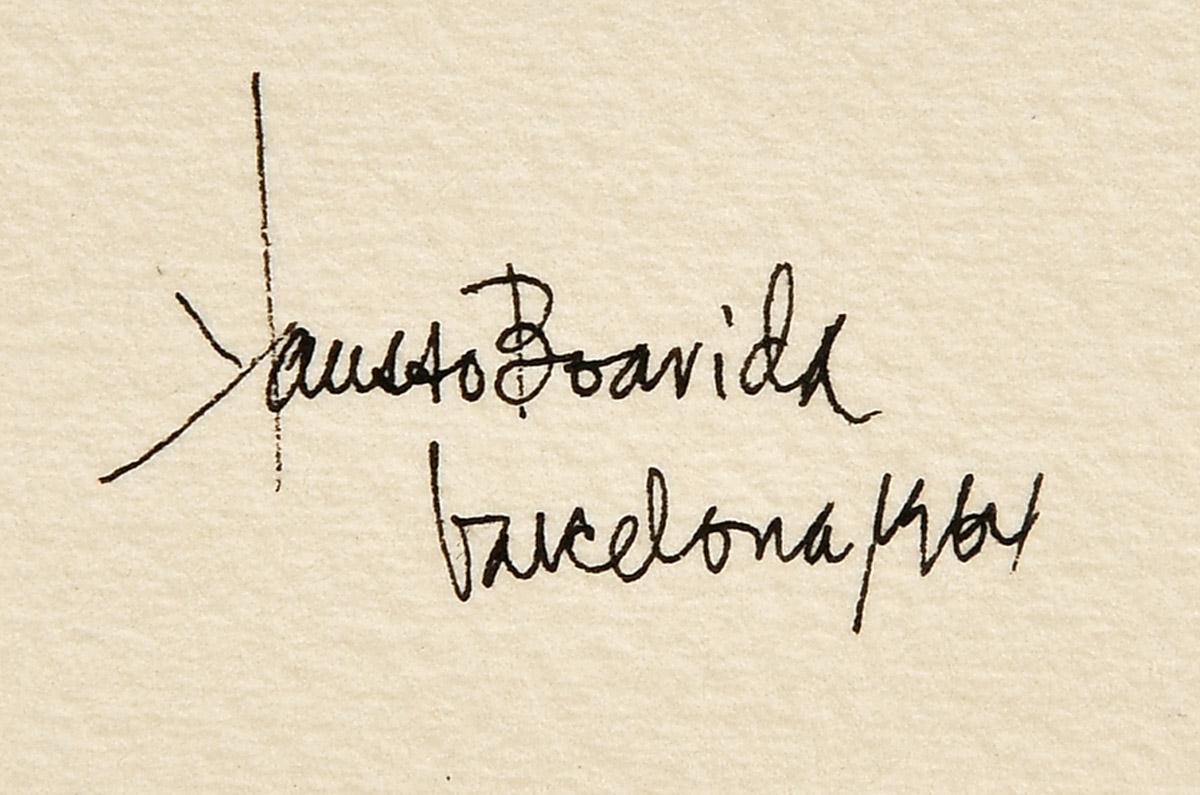 Fausto Boavida
barcelona/1964